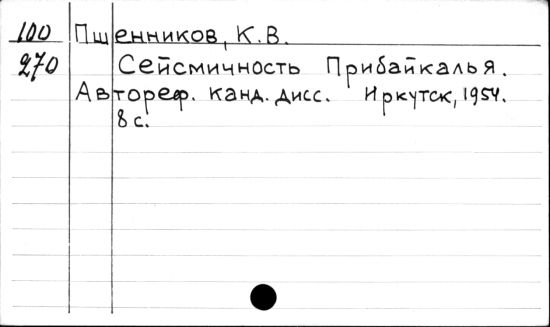 100 Пшенников, К.В.
270 Сейсмичность Прибайкалья.
Автореф. канд. дисс. Иркутск, 1954.
8 с.